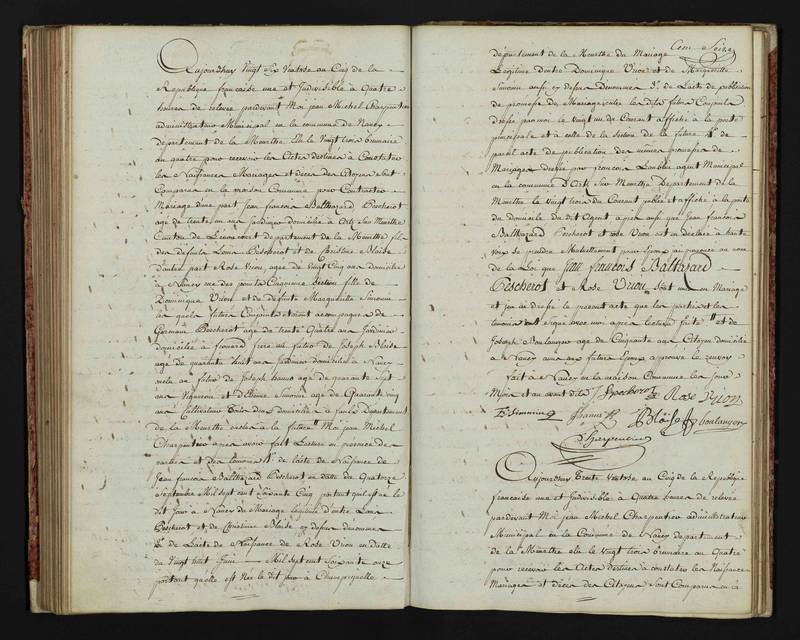 Aujourdhuy Vingt Six Ventose au Cinq de la
Republique francaise une et Indivisible à Quatre
heures de relevée pardevant Moi jean Michel Charpentier
administrateur Municipal en la commune de Nancy
departement de la Meurthe Elu le Vingt trois brumaire
au quatre pour recevoir les Actes destinés à Constater
les Naissances Mariages et deces des Citoyens Sont
Comparus en la maison Commune pour Contracter
Mariage dune part Jean francois Balthazard Pescherot
agé de trente un ans jardinier domicilié à Arts Sur Meurthe
Canton de departement de la Meurthe fils
des defunts Pescherot et de Christine Blaise
dautre part Rose Viriou, agée de Vingt Cinq ans domiciliée
à Nancy Cinquieme Section fille de
Dominique Viriou et de defunte Marguerite Simonin
les quels futurs Conjoints etoient accompagnés de
Germain Pescherot agé de trente Quatre ans Jardinier
domicilié à frouard frere au futur de Joseph Blaise
agé de quarante huit ans Jardinier domicilié à Nancy
oncle au futur de Joseph agé de quarante Sept
ans Vigneron et Etienne Simonin agé de Quarante cinq
ans Cultivateur domiciliés à departement
de la Meurthe oncles à la future Moi jean Michel
Charpentier apres avoir fait Lecture en presence des
parties et des temoins 1° de l'acte de Naissance de
Jean francois Balthazard Pescherot en datte du Quatorze
Septembre Mil Sept cent Soixante Cinq portant quil est né le
dit jour à Nancy du Mariage legitime d'entre
Pescherot et de Christine Blaise cy defus denommés
2° de L'acte de Naissance de Rose Viriou en Datte
du Vingt huit Juin Mil Sept cent Soixante onze
portant qu'elle est Née le dit jour à Champigneulle
Cent Seize
departement de la Meurthe du Mariage
Légitime d'entre Dominique Viriou et de Marguerite
Simonin aussi cy defus denommés 3° de L'acte de publication
de promesse de Mariage entre les dits futurs Conjoints
dressé par moi le vingt un du Courant affiché à la porte
principale et à celle de la Section de la future 4° de
pareil acte de publication des mêmes promesses de
Mariages dressé par francois agent Municipal
en la commune d'Arts Sur Meurthe Departement de la
Meurthe le Vingt trois du Courant publié et affiché à la porte
du domicile du dit Agent apres aussi que Jean francois
Balthazard Pescherot et Rose Viriou ont declaré à haute
voix se prendre Mutuellement pour Epoux jai prononcé au nom
de la Loi que Jean francois Baltazard
Pescherot et Rose Viriou Sont unis en Mariage
et jai dressé le present acte que les parties et les
temoins ont signé avec moi apres lecture faite et de
Joseph Boulanger agé de Cinquante ans Citoyen domicilié
à Nancy ami aux futurs Epoux approuvé le renvoy
fait à Nancy en la maison Commune les jour
Mois et an avant dits J Pecherot Rose Viriou
E Simmin Blaise Boulangé
Charpentier
Aujourdhuy Trente Ventose au Cinq de la Republique
francaise une et Indivisible à Quatre heures de relevée
pardevant Moi jean Michel Charpentier administrateur
Municipal en la Commune de Nancy departement
de la Meurthe elu le Vingt trois brumaire au Quatre
pour recevoir les Actes destinés à constater les Naissances
Mariages et décès des Citoyens Sont Comparus en la